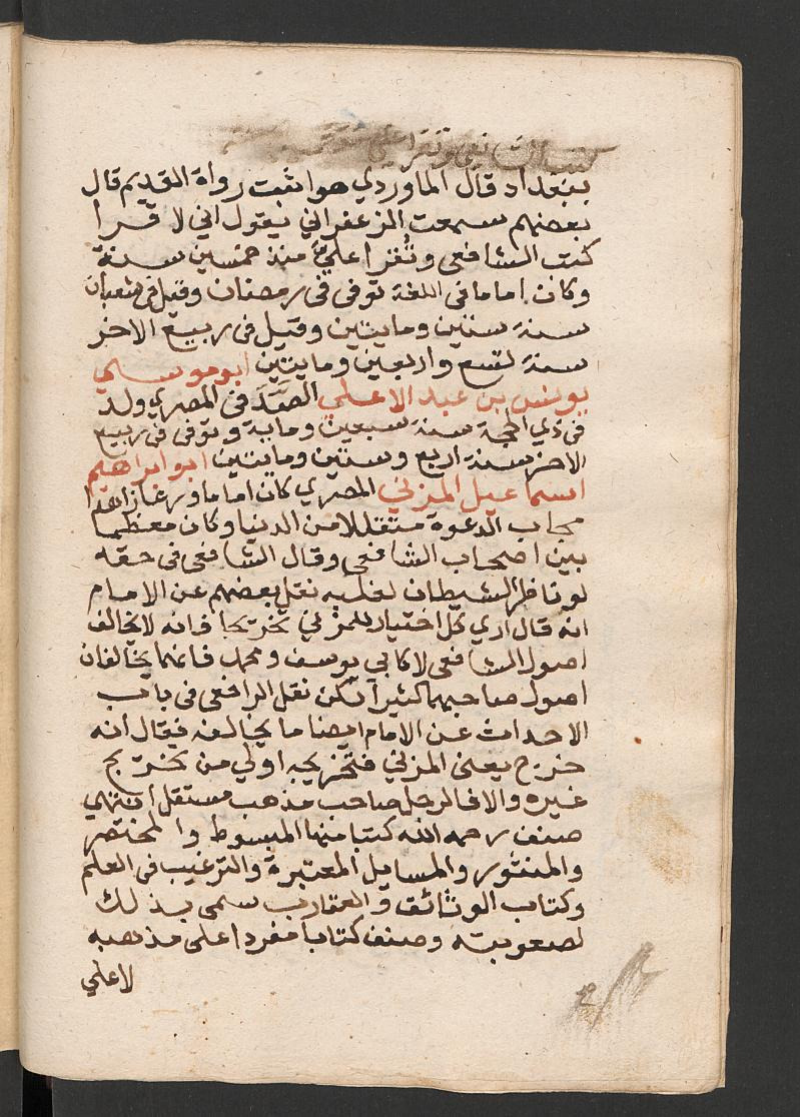 كتب الشافعي وتقرا علي
ببغداد قال الماوردي هو اثبت رواة القديم قال
بعضهم سمعت الزعفراني يقول اني لا قرا
كتب الشافعي وتقرا علي منذ خمسين سنة
وكان اماما في اللغة توفي في رمضان وقيل في شعبان
سنة ستين ومايتين وقيل في ربيع الاخر
سنة تسع واربعين ومايتين ابو موسي
يونس بن عبد الاعلي الصدفي المصري ولد
في ذي الحجة سنة سبعين وماية وتوفي في ربيع
الاخر سنة اربع وستين ومايتين ابو ابراهيم
اسماعيل المزني المصري كان اماما ورعا زاهدا
مجاب الدعوة متقللا من الدنيا وكان معظما
بين اصحاب الشافعي وقال الشافعي في حقه
لو ناظر الشيطان لغلبه نقل بعضهم عن الامام
انه قال اري كل اختيار للمزني تخريجا فانه لا يخالف
اصول الشافعي لا كابي يوسف ومحمد فانهما يخالفان
اصول صاحبهما كثيرا لكن نقل الرافعي في باب
الاحداث عن الامام ايضا ما يخالفه فيقال انه
خرج يعني المزني فتخريجه اولي من تخريج
غيره والا فالرجل صاحب مذهب مستقل انتهي
صنف رحمه الله كتبا منها المبسوط والمختصر
والمنثور والمسايل المعتبرة والترغيب في العلم
وكتاب الوثائق والعقارب سمي بذلك
لصعوبته وصنف كتابا مفردا علي مذهبه
لا علي